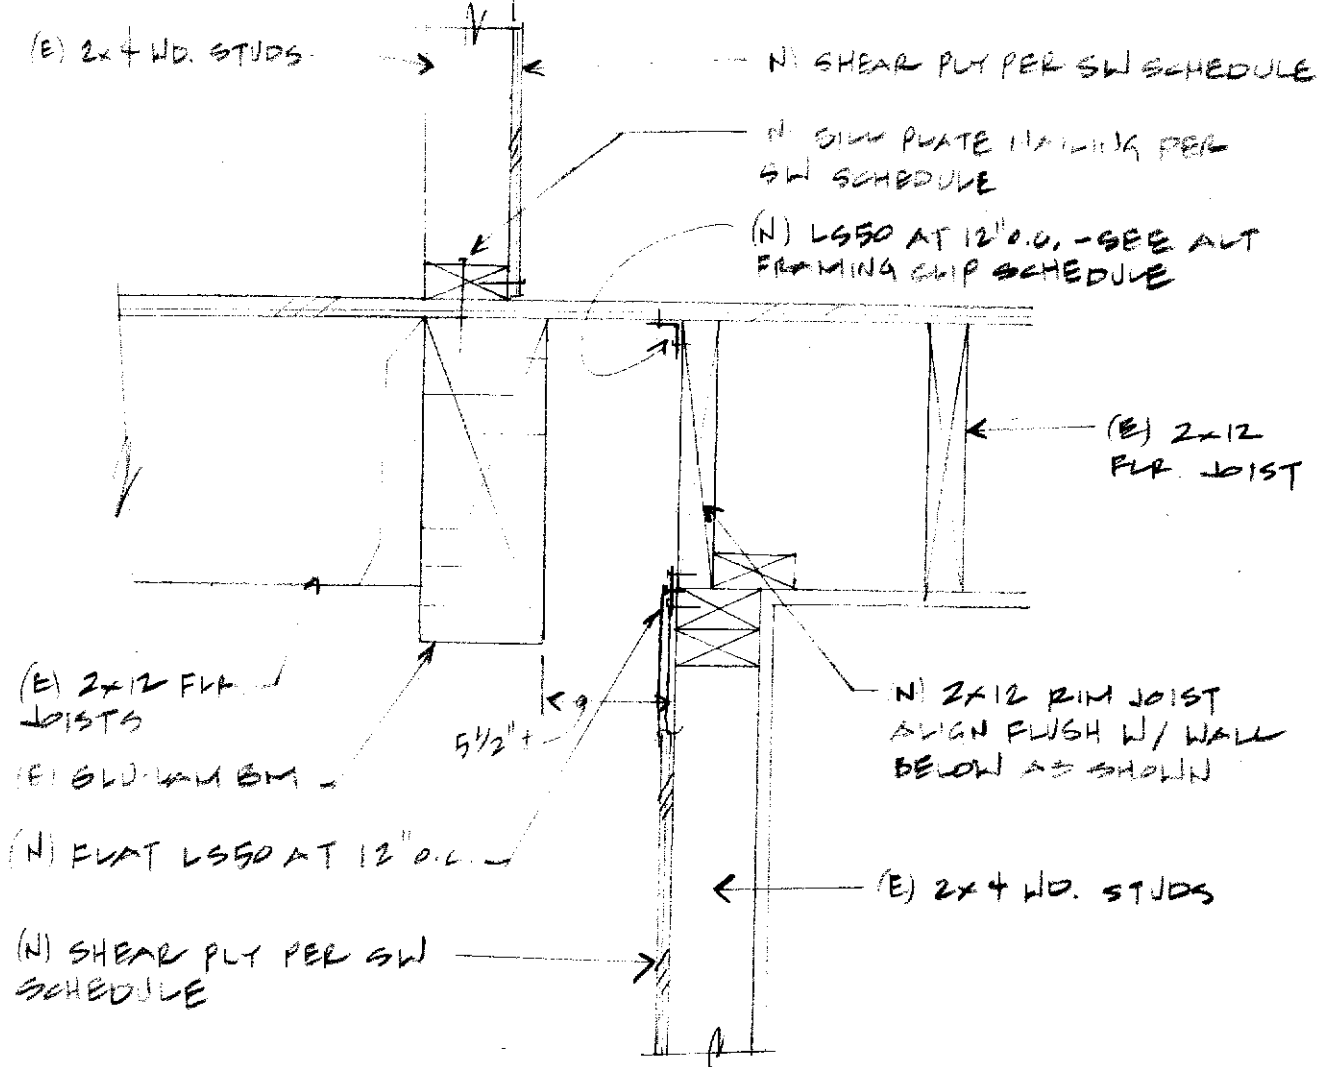 (E) 2x4 WD. STUDS
N) SHEAR PLY PER SW SCHEDULE
N SILL PLATE NAILING PER
SW SCHEDULE
(N) LS50 AT 12" O.C. - SEE ALT
FRAMING CLIP SCHEDULE
(E) 2x12
FLR. JOIST
(E) 2x12 FLR
JOISTS
5 1/2" ±
(E) GLU-LAM BM
N) 2x12 RIM JOIST
ALIGN FLUSH W/ WALL
BELOW AS SHOWN
(N) FLAT LS50 AT 12" O.C.
(E) 2x4 WD. STUDS
(N) SHEAR PLY PER SW
SCHEDULE